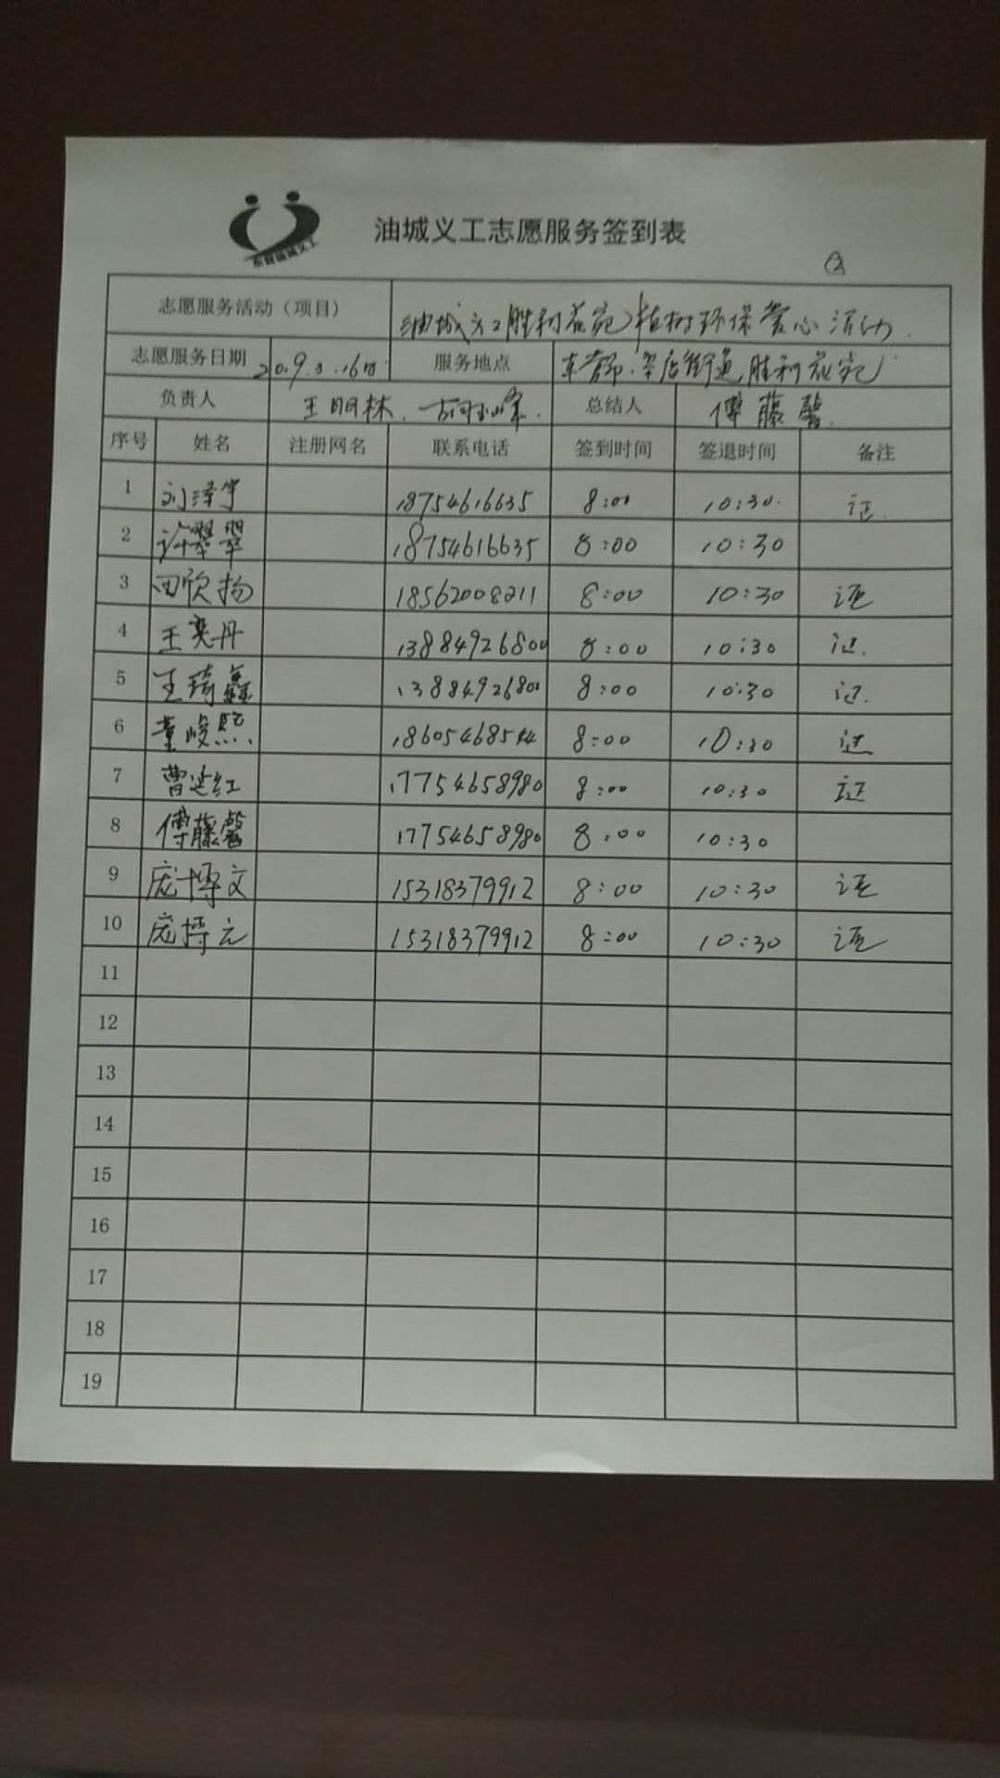 东营油城义工
油城义工志愿服务签到表
②
志愿服务活动（项目） 油城义工胜利花苑植树环保爱心活动.
志愿服务日期 服务地点 胜利花苑
负责人 王明林. 总结人 傅藤馨
序号 姓名 注册网名 联系电话 签到时间 签退时间 备注
1 刘泽宇 18754616635 8:00 10:30. 证.
2 许翠翠 18754616635 8:00 10:30
3 田欣扬 18562008211 8:00 10:30 证
4 王奕丹 13884926800 8:00 10:30 证.
5 王琦鑫 13884926800 8:00 10:30 证.
6 董峻熙 8:00 10:30 证
7 曹延红 17754658980 8:00 10:30 证
8 傅藤馨 17754658980 8:00 10:30
9 庞博文 15318379912 8:00 10:30 证
10 庞博元 15318379912 8:00 10:30 证
11
12
13
14
15
16
17
18
19